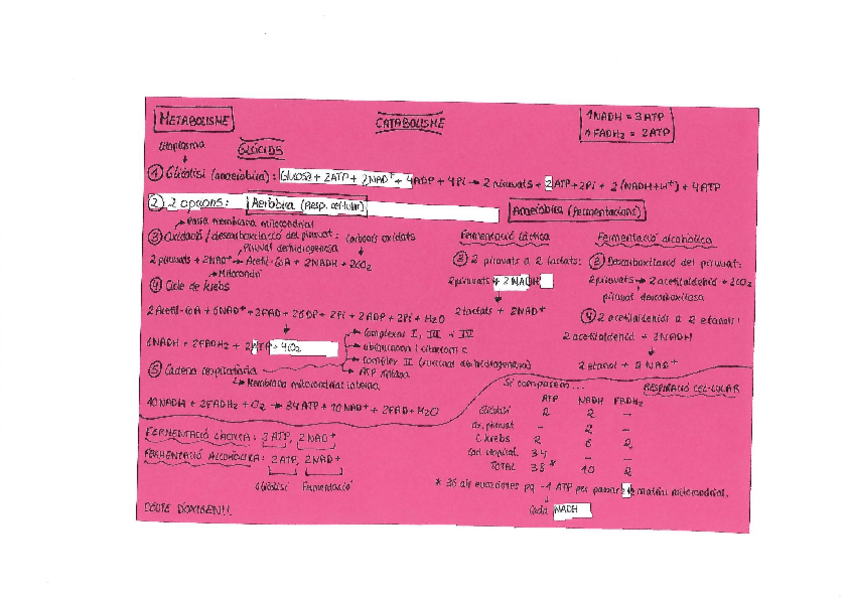 METABOLISME
CATABOLISME
1 NADH = 3 ATP
1 FADH2 = 2 ATP
Citoplasma
GLÚCIDS
① Glicòlisi (anaeròbia): Glucosa + 2 ATP + 2 NAD+ + 4 ADP + 4 Pi → 2 piruvats + 2 ADP + 2 Pi + 2 (NADH+H+) + 4 ATP
② 2 opcions: Aeròbia (Resp. cel·lular)
Anaeròbia (fermentacions)
Passa membrana mitocondrial
③ Oxidació / descarboxilació del piruvat: carbonis oxidats
Piruvat deshidrogenasa
2 piruvats + 2NAD+ → Acetil-CoA + 2NADH + 2CO2
Mitocondri
④ Cicle de Krebs
2 Acetil-CoA + 6NAD+ + 2FAD + 2GDP + 2Pi + 2ADP + 2Pi + H2O
6NADH + 2FADH2 + 2ATP + 4CO2
Complexos I, III i IV
ubiquinona i citocrom c
Complex II (succinat deshidrogenasa)
ATP sintasa
⑤ Cadena respiratòria
Membrana mitocondrial interna
10NADH + 2FADH2 + O2 → 34 ATP + 10NAD+ + 2FAD + H2O
Fermentació làctica
③ 2 piruvats a 2 lactats:
2 piruvats + 2 NADH
2 lactats + 2NAD+
Fermentació alcohòlica
③ Descarboxilació del piruvat:
2 piruvats → 2 acetaldehid + 2CO2
piruvat descarboxilasa
④ 2 acetaldehids a 2 etanols:
2 acetaldehid + 2NADH
2 etanol + 2 NAD+
FERMENTACIÓ LÀCTICA: 2 ATP, 2 NAD+
FERMENTACIÓ ALCOHÒLICA: 2 ATP, 2 NAD+
Glicòlisi Fermentació
Si comparem...
RESPIRACIÓ CEL·LULAR
ATP NADH FADH2
Glicòlisi 2 2 -
ox. piruvat - 2 -
C. Krebs 2 6 2
cad. respirat. 34 - -
TOTAL 38* 10 2
* 36 als eucariotes pq -1 ATP per passar a matriu mitocondrial.
cada NADH